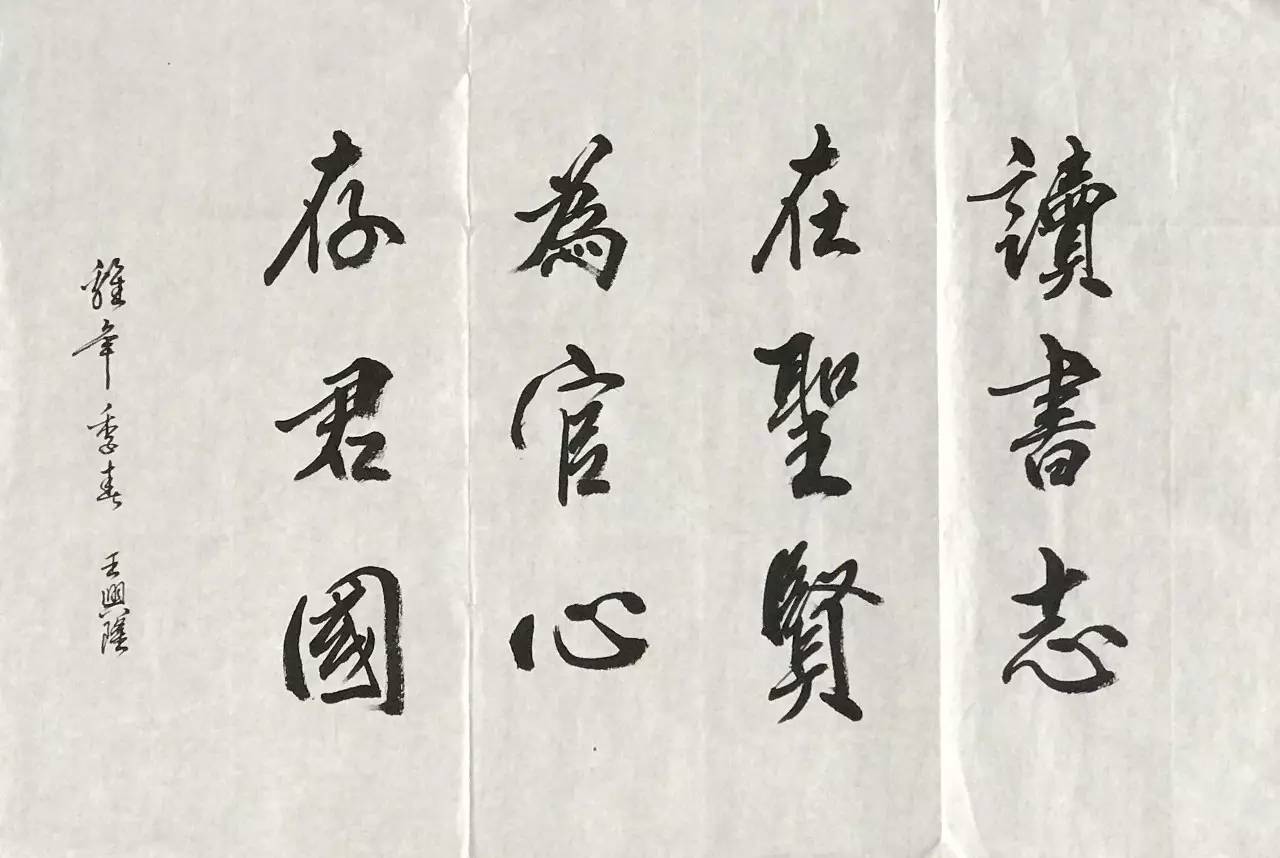 讀書志
在聖賢
為官心
存君國
雞年季春 王興隆